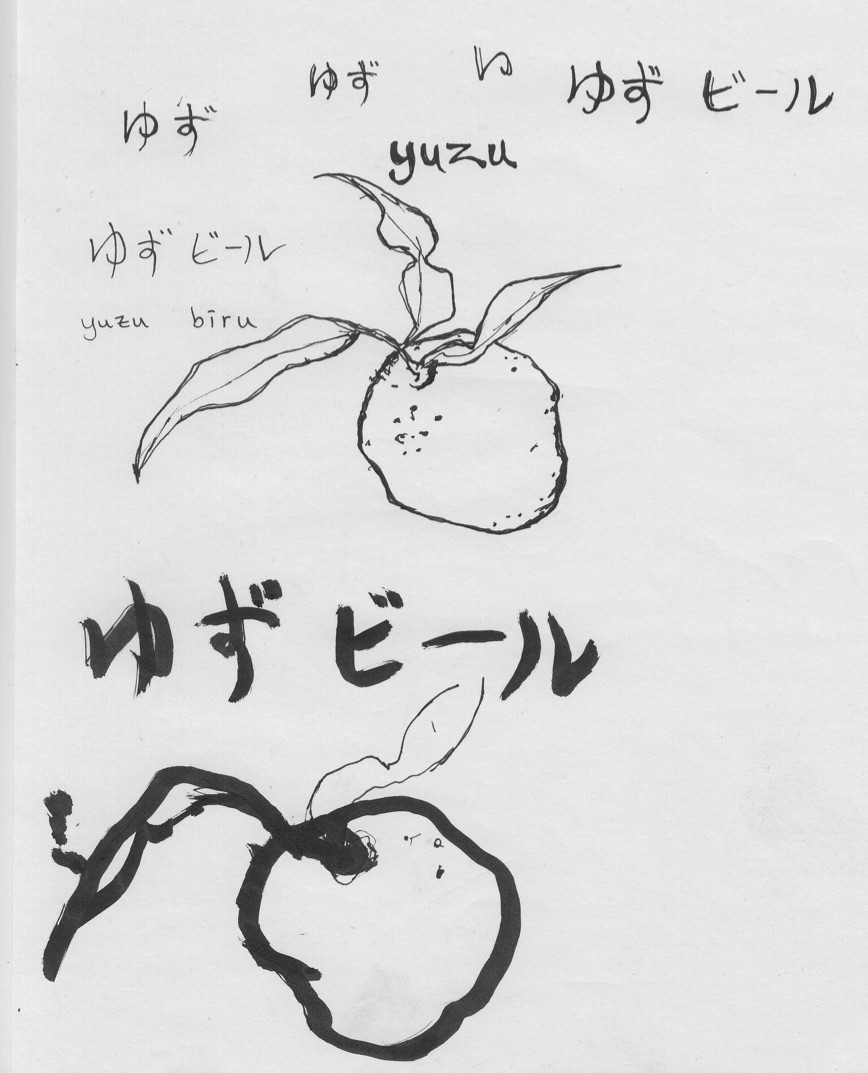 ゆず
い
ゆず ビール
ゆず
yuzu
ゆず ビール
yuzu bīru
ゆず ビール